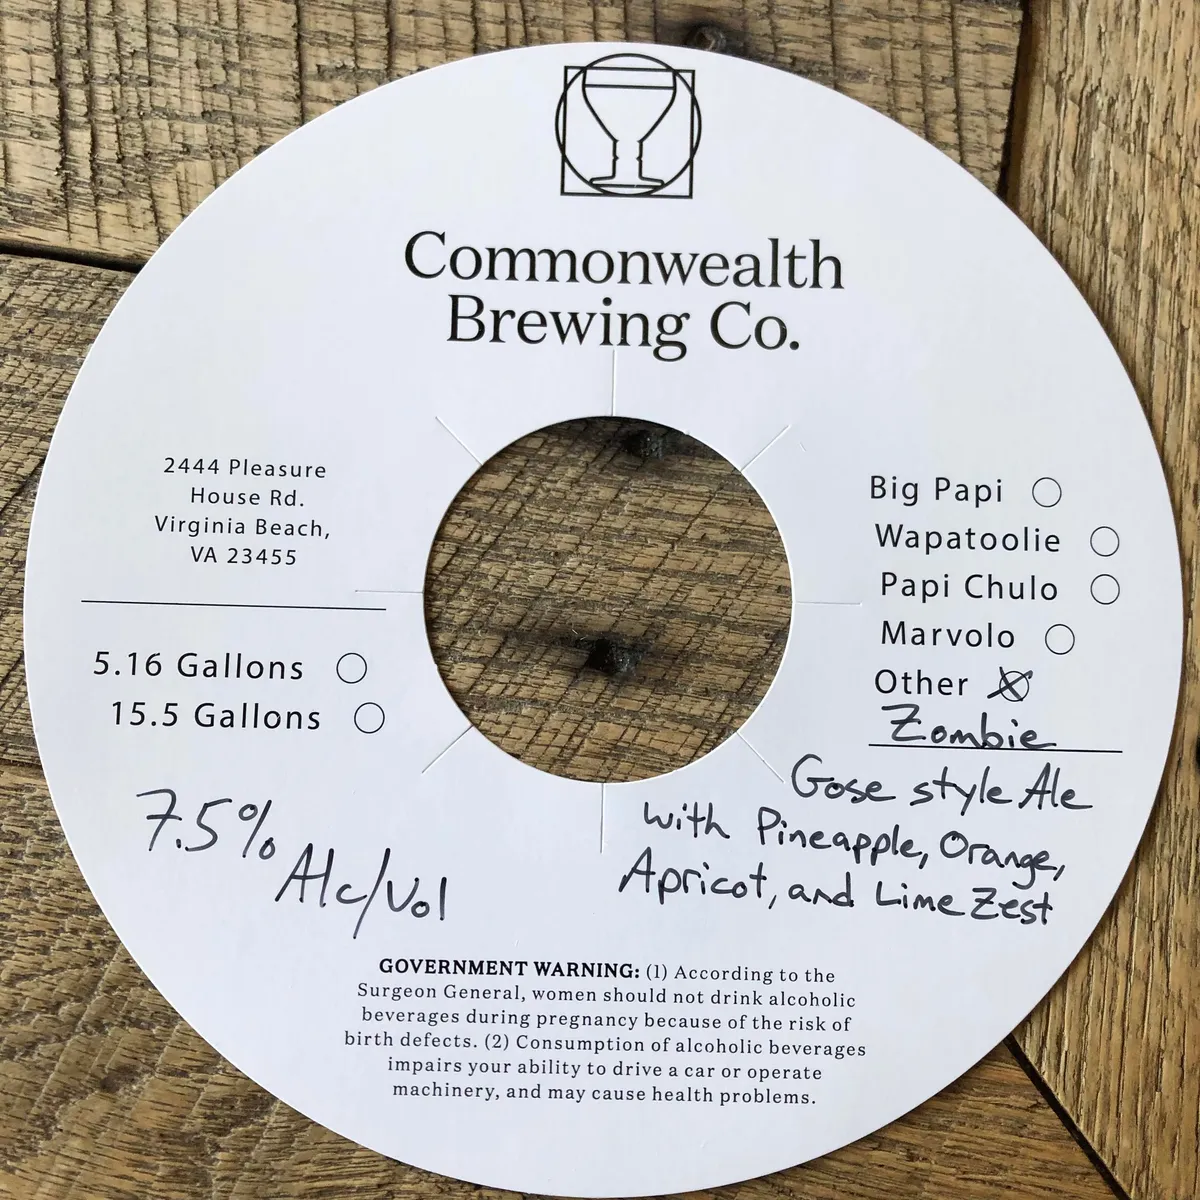 Commonwealth
Brewing Co.
2444 Pleasure
House Rd.
Virginia Beach,
VA 23455
5.16 Gallons
15.5 Gallons
7.5% Alc/Vol
Big Papi
Wapatoolie
Papi Chulo
Marvolo
Other
Zombie
Gose style Ale
with Pineapple, Orange,
Apricot, and Lime Zest
GOVERNMENT WARNING: (1) According to the
Surgeon General, women should not drink alcoholic
beverages during pregnancy because of the risk of
birth defects. (2) Consumption of alcoholic beverages
impairs your ability to drive a car or operate
machinery, and may cause health problems.